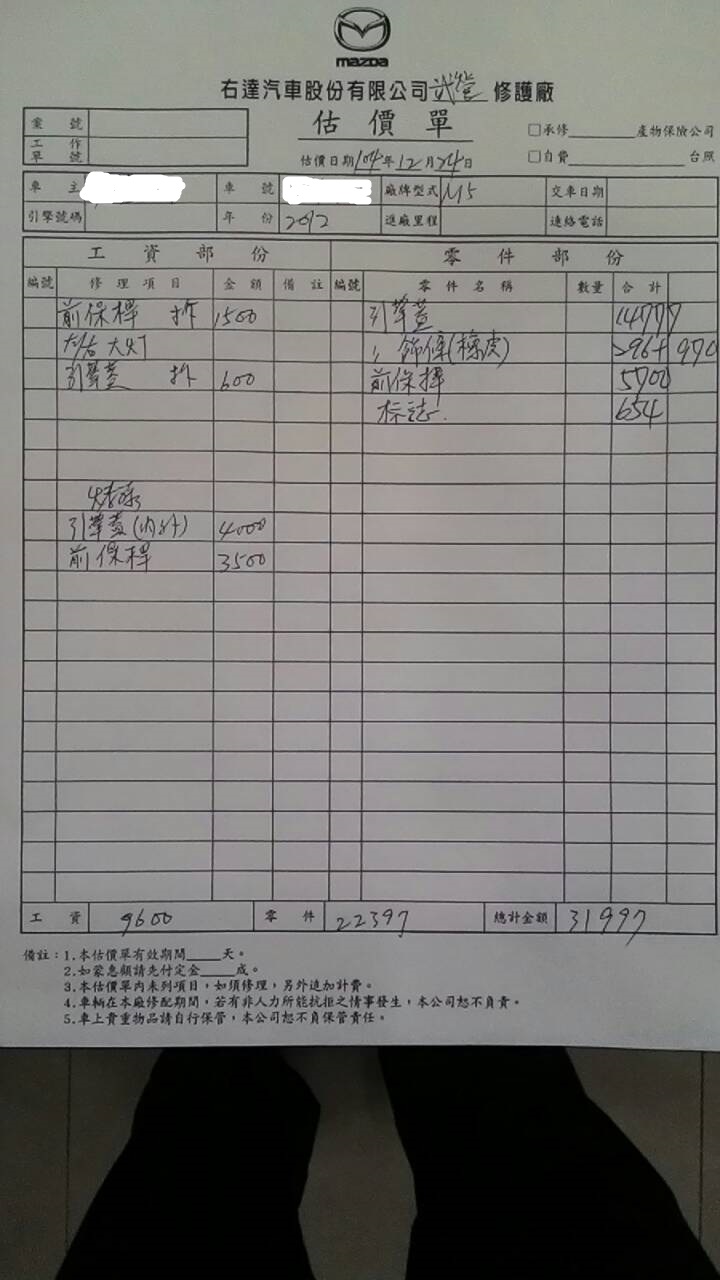 mazda
右達汽車股份有限公司武營修護廠
估價單
案號
工作單號
估價日期104年12月24日
□承修______產物保險公司
□自費______台照
車主 車號 廠牌型式 M5 交車日期
引擎號碼 年份 2012 進廠里程 連絡電話
工資部份 零件部份
編號 修理項目 金額 備註 編號 零件名稱 數量 合計
前保桿 拆 1500 引擎蓋 14777
左右大灯 〃 飾條(橡皮) 296+970
引擎蓋 拆 600 前保桿 5700
标誌. 654
烤漆
引擎蓋(內外) 4000
前保桿 3500
工資 9600 零件 22397 總計金額 31997
備註：1.本估價單有效期間_____天。
2.如蒙惠顧請先付定金_____成。
3.本估價單內未列項目，如須修理，另外追加計費。
4.車輛在本廠修配期間，若有非人力所能抗拒之情事發生，本公司恕不負責。
5.車上貴重物品請自行保管，本公司恕不負保管責任。